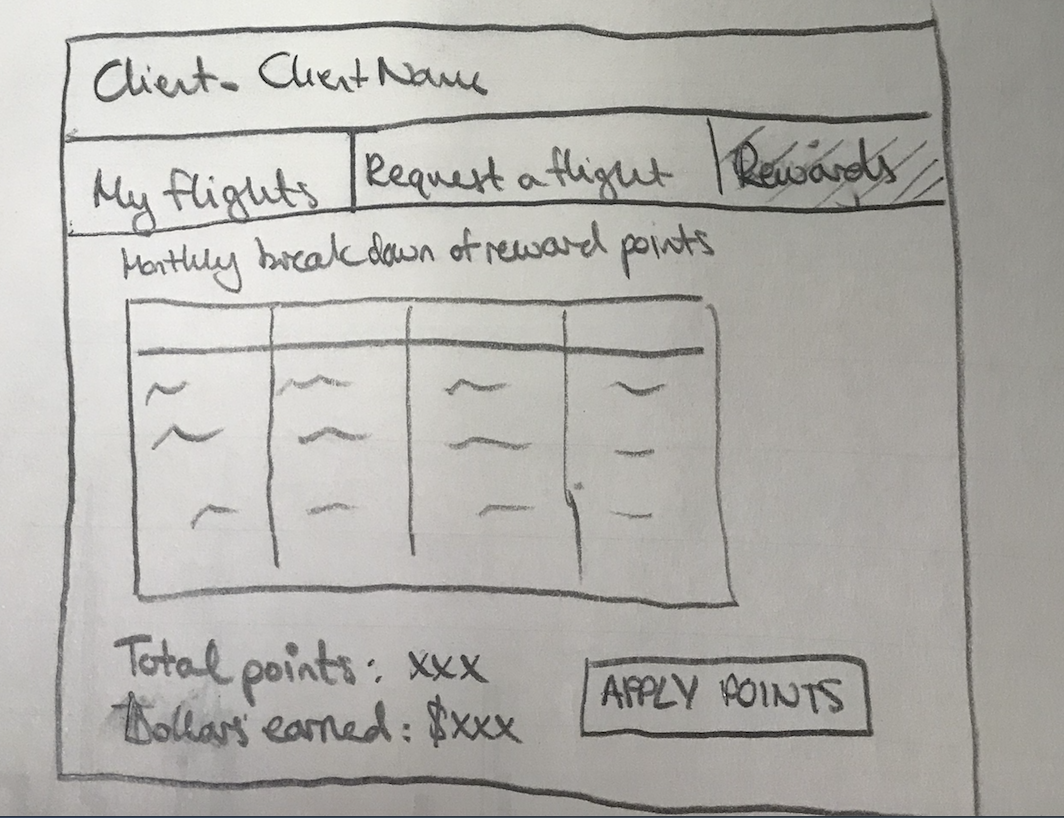 Client - Client Name
My flights Request a flight Rewards
Monthly breakdown of reward points
Total points: xxx
Dollars earned: $xxx
APPLY POINTS